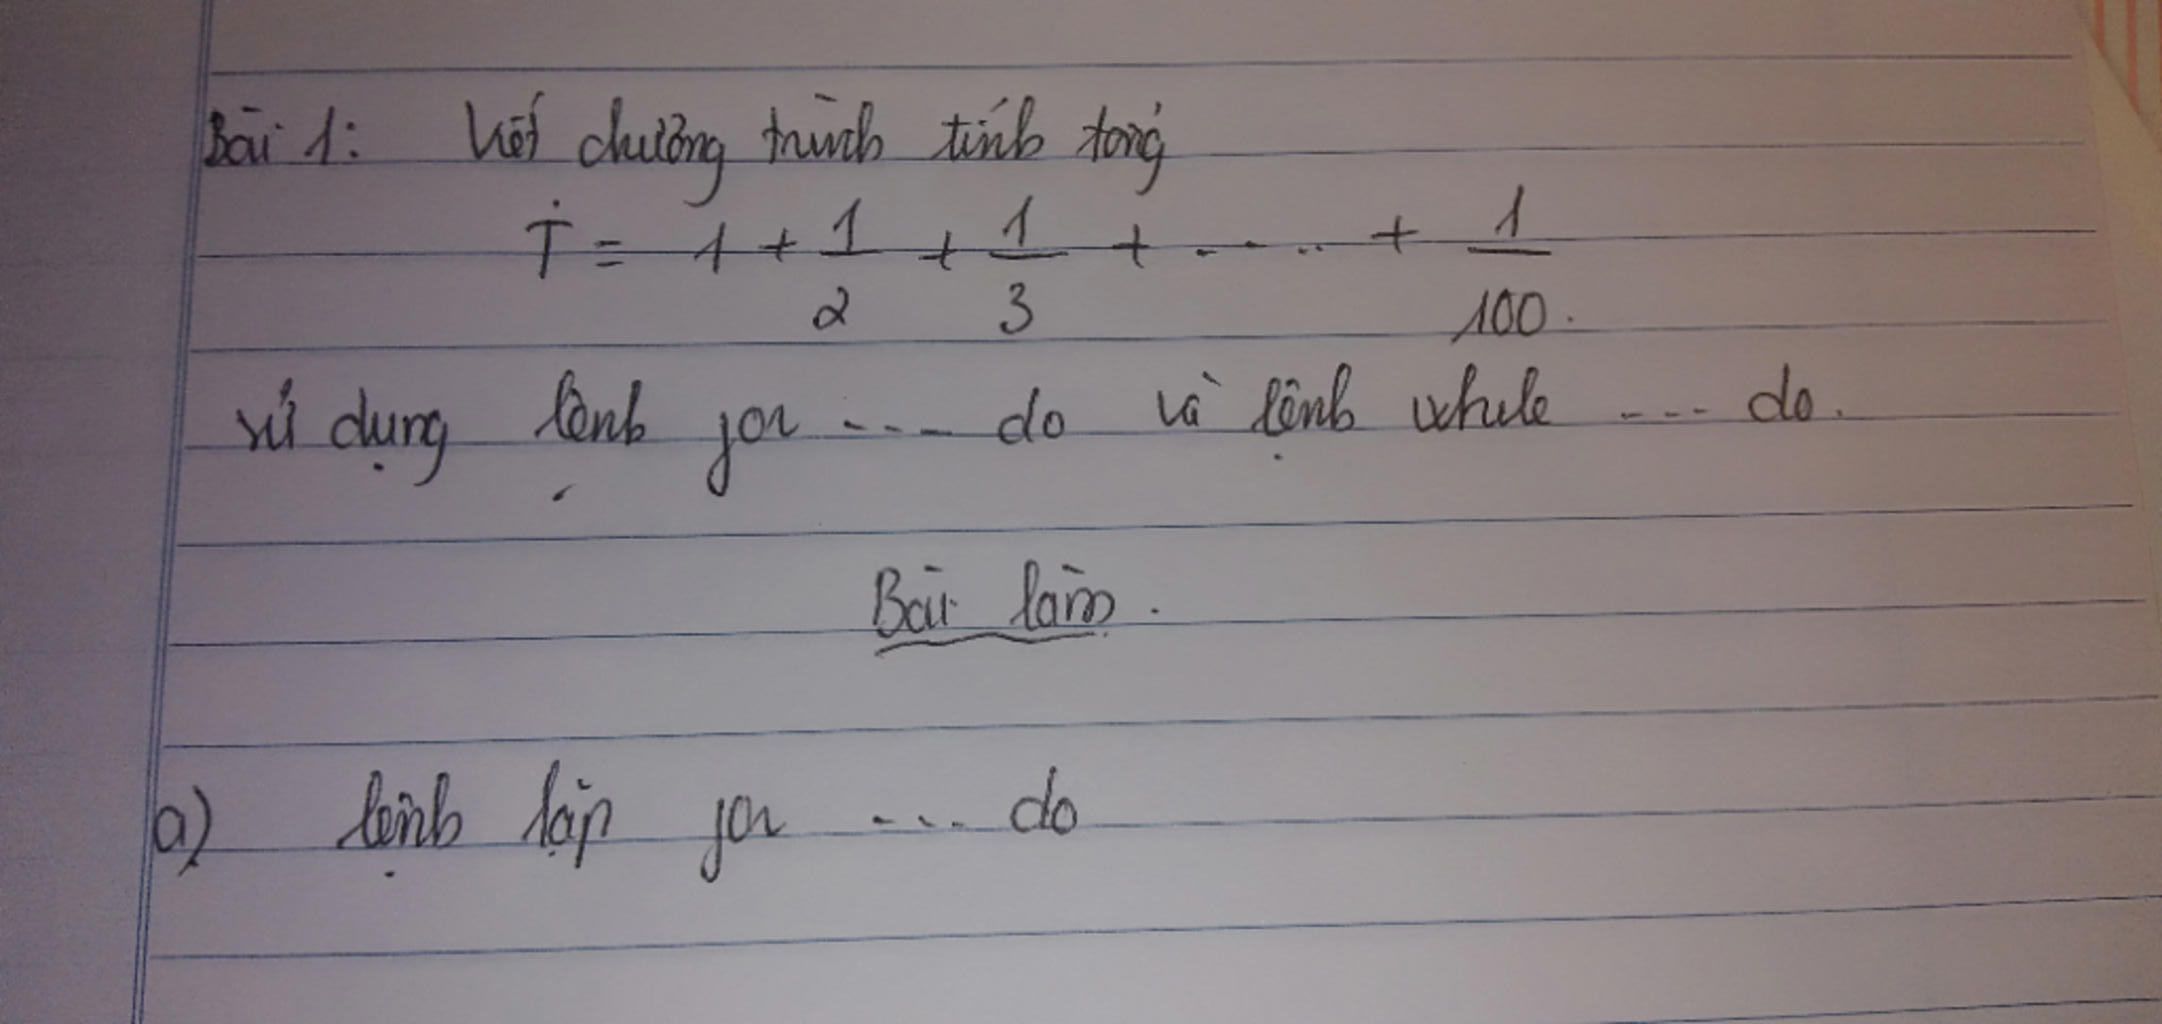 Bài 1: Viết chương trình tính tổng
T = 1 + 1/2 + 1/3 + ..... + 1/100.
sử dụng lệnh for .... do và lệnh while .... do.
Bài làm.
a) lệnh lặp for .... do